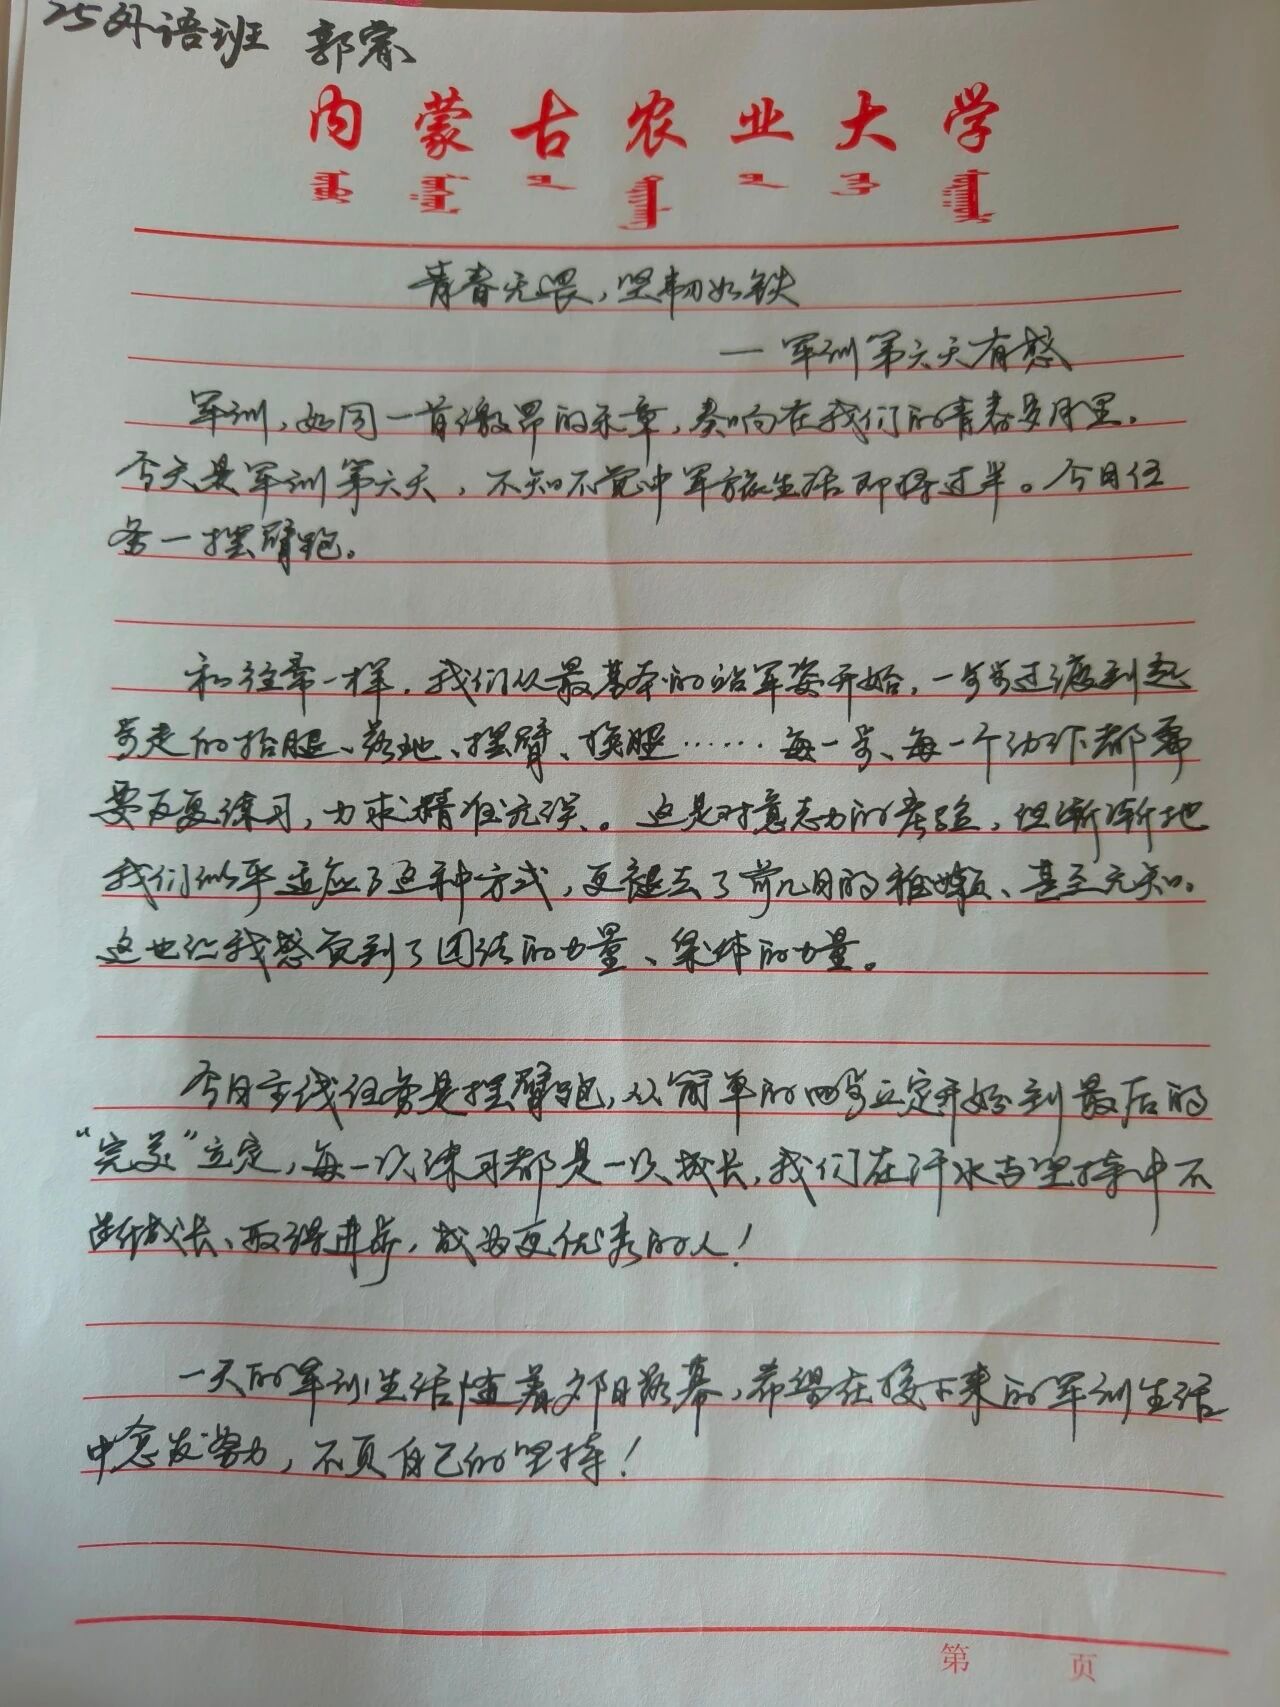 25外语班 郭
内蒙古农业大学
青春无畏，坚韧如铁
— 军训第六天有感
军训，如同一首激昂的乐章，奏响在我们的青春岁月里。
今天是军训第六天，不知不觉中军旅生活即将过半。今日任
务一摆臂跑。
和往常一样，我们从最基本的站军姿开始，一步步过渡到起
步走的抬腿、落地、摆臂、换腿……每一步、每一个动作都需
要反复练习，力求精准无误。这是对意志力的考验，但渐渐地
我们似乎适应了这种方式，更褪去了前几日的稚嫩、甚至无知。
这也让我感觉到了团结的力量、集体的力量。
今日主线任务是摆臂跑，从简单的四步立定开始到最后的
“完美”立定，每一次练习都是一次成长，我们在汗水与坚持中不
断成长、取得进步，成为更优秀的人！
一天的军训生活随着夕阳落幕，希望在接下来的军训生活
中愈发努力，不负自己的坚持！
第 页